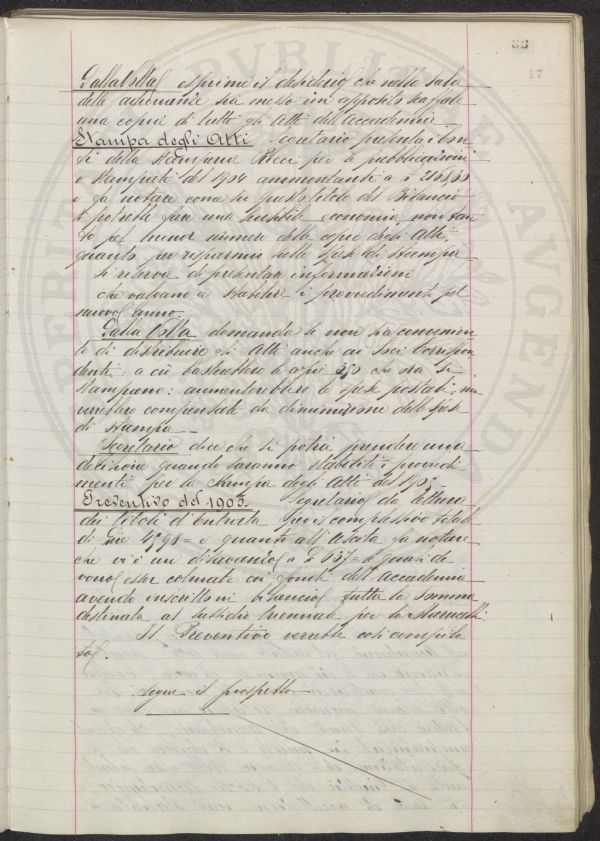 33
17
Dalla Volta esprime il desiderio che nella sala
delle adunanze sia messo un apposito scaffale
una copia di tutti gli Atti dell'Accademia
Stampa degli Atti Segretario presenta i con-
ti della Stamperia Ricci per le pubblicazioni
e stampati del 1904 ammontanti a
e fa notare come su questo titolo del Bilancio
si potrebbe fare una sensibile economia, non tan-
to pel minor numero delle copie degli Atti,
quanto per risparmio nelle spese di stampa
si riserva di presentare informazioni
che valgano a stabilire i provvedimenti pel
nuovo anno.
Dalla Volta domanda se non sia convenien-
te di distribuire gli Atti anche ai Soci Corrispon-
denti: a ciò basterebbero le copie 250 che ora si
stampano: aumenterebbero le spese postali, ma
verrebbero compensate da diminuzione delle spese
di stampa
Segretario dice che si potrà prendere una
decisione quando saranno stabiliti i provvedi-
menti per la stampa degli Atti del 1905.
Preventivo del 1905. Segretario dà lettura
dei titoli d'Entrata pel complessivo totale
di Lire e quanto all'Uscita fa notare
che vi è un disavanzo a £ 637= le quali de-
vono esser colmate coi fondi dell'Accademia
avendo inscritto in bilancio tutta la somma
destinata al sussidio triennale per la
Il Preventivo verrebbe così compila-
to.
Segue il prospetto
PVBLICAE
AVGENDA